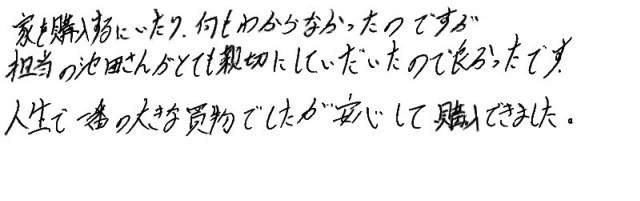 家を購入するにいたり、何もわからなかったのですが
担当の池田さんがとても親切にしていだいたので良かったです。
人生で一番の大きな買物でしたが安心して購入できました。